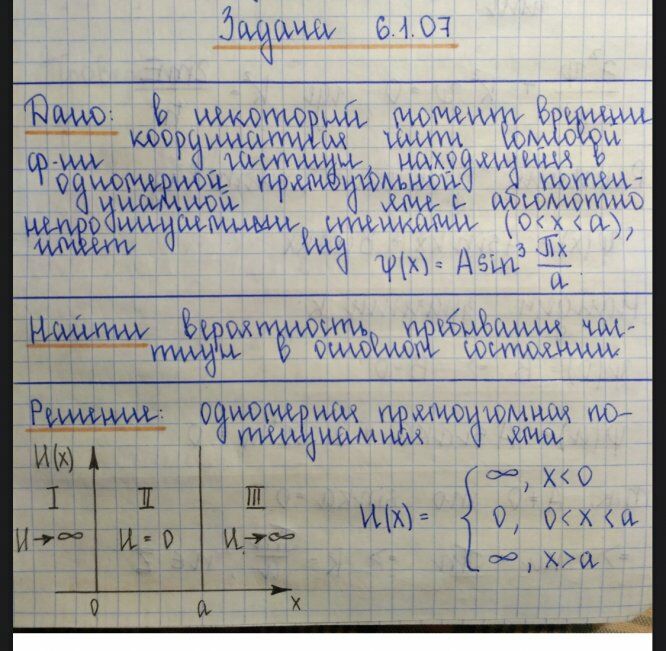 Задача 6.1.07
Дано: в некоторый момент времени
координатная часть волновой
ф-ии частицы, находящейся в
одномерной прямоугольной потен-
циальной яме с абсолютно
непроницаемыми стенками (0<x<a),
имеет вид ψ(x) = A sin³ πx/a
Найти вероятность пребывания час-
тицы в основном состоянии
Решение: одномерная прямоугольная по-
тенциальная яма
U(x)
I II III
U→∞ U=0 U→∞
0 a x
U(x) = { ∞, x<0
0, 0<x<a
∞, x>a